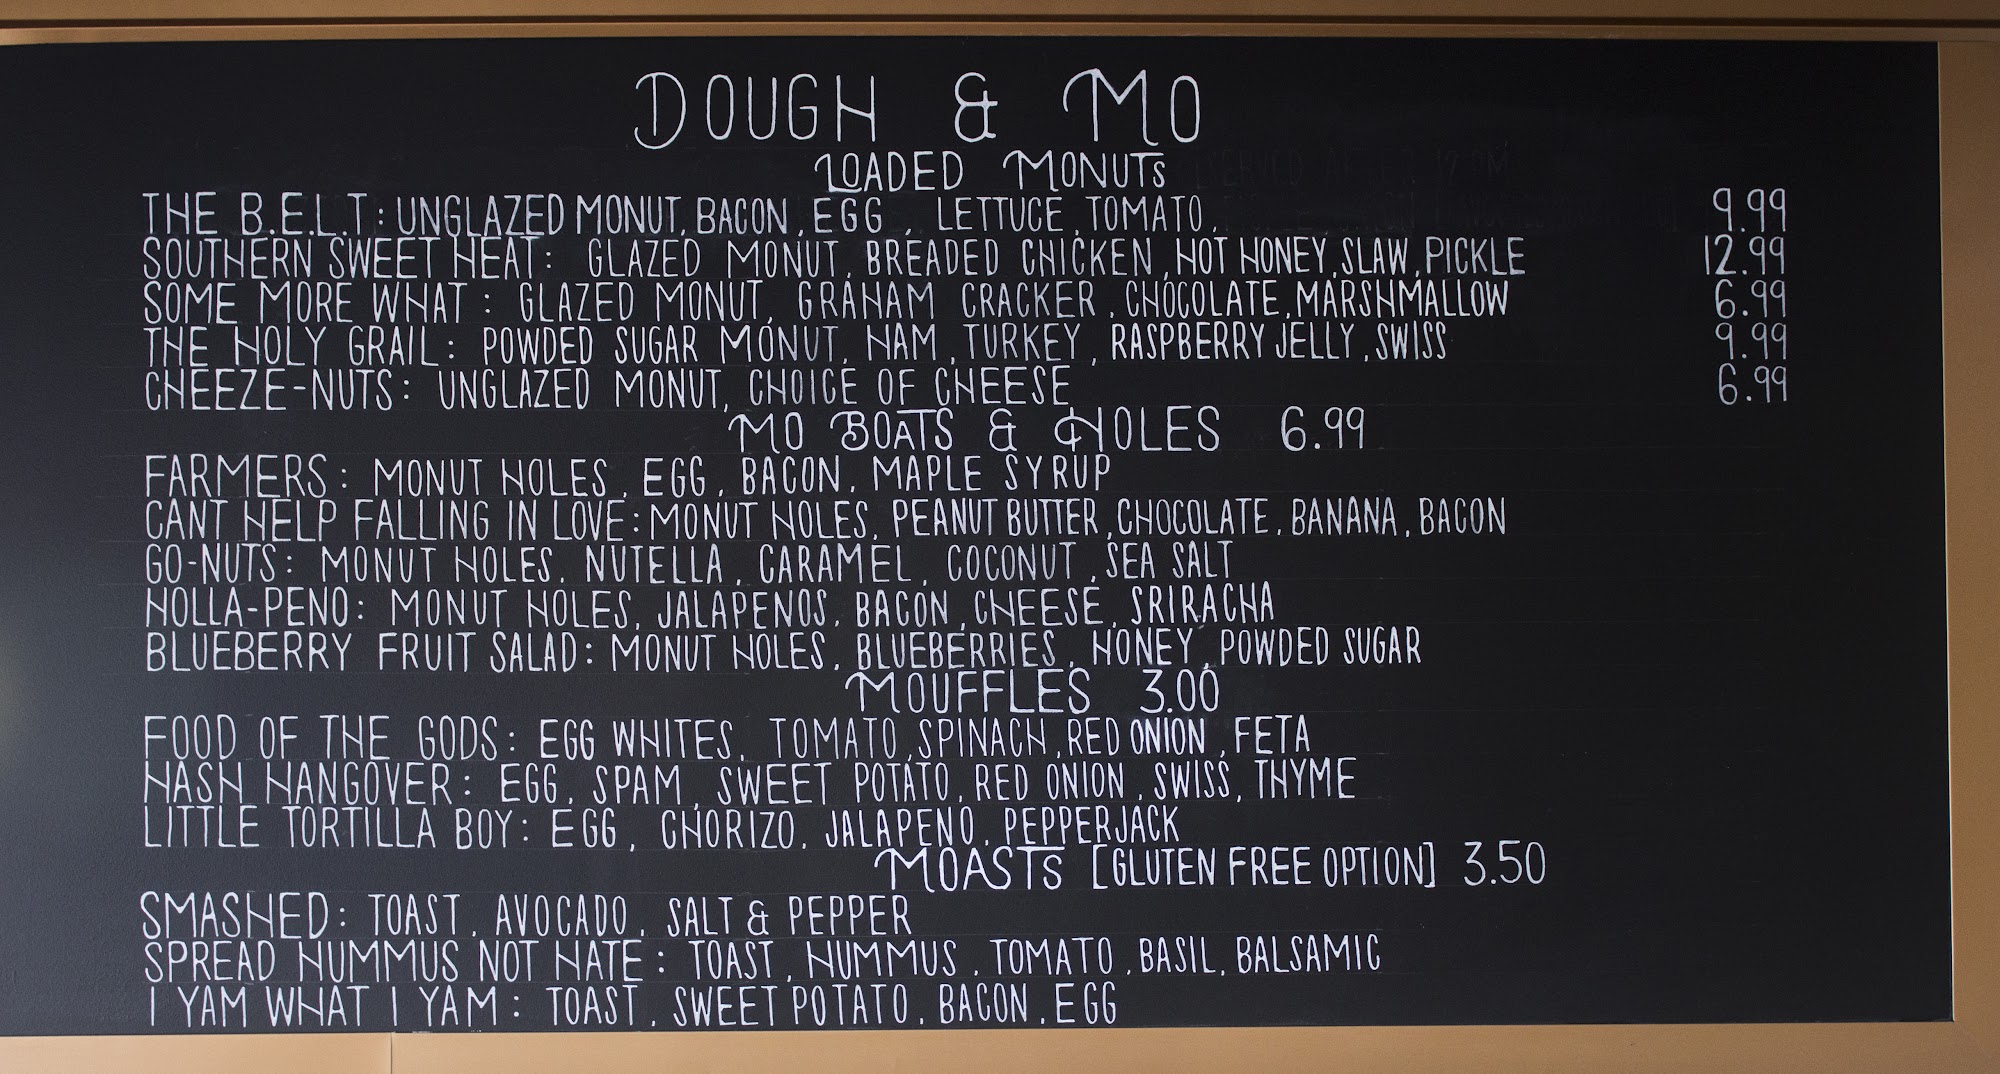 DOUGH & MO
LOADED MONUTS
THE B.E.L.T: UNGLAZED MONUT, BACON, EGG, LETTUCE, TOMATO, 9.99
SOUTHERN SWEET HEAT: GLAZED MONUT, BREADED CHICKEN, HOT HONEY, SLAW, PICKLE 12.99
SOME MORE WHAT: GLAZED MONUT, GRAHAM CRACKER, CHOCOLATE, MARSHMALLOW 6.99
THE HOLY GRAIL: POWDED SUGAR MONUT, HAM, TURKEY, RASPBERRY JELLY, SWISS 9.99
CHEEZE-NUTS: UNGLAZED MONUT, CHOICE OF CHEESE 6.99
MO BOATS & HOLES 6.99
FARMERS: MONUT HOLES, EGG, BACON, MAPLE SYRUP
CANT HELP FALLING IN LOVE: MONUT HOLES, PEANUT BUTTER, CHOCOLATE, BANANA, BACON
GO-NUTS: MONUT HOLES, NUTELLA, CARAMEL, COCONUT, SEA SALT
HOLLA-PENO: MONUT HOLES, JALAPENOS, BACON, CHEESE, SRIRACHA
BLUEBERRY FRUIT SALAD: MONUT HOLES, BLUEBERRIES, HONEY, POWDED SUGAR
MOUFFLES 3.00
FOOD OF THE GODS: EGG WHITES, TOMATO, SPINACH, RED ONION, FETA
HASH HANGOVER: EGG, SPAM, SWEET POTATO, RED ONION, SWISS, THYME
LITTLE TORTILLA BOY: EGG, CHORIZO, JALAPENO, PEPPERJACK
MOASTS [GLUTEN FREE OPTION] 3.50
SMASHED: TOAST, AVOCADO, SALT & PEPPER
SPREAD HUMMUS NOT HATE: TOAST, HUMMUS, TOMATO, BASIL, BALSAMIC
I YAM WHAT I YAM: TOAST, SWEET POTATO, BACON, EGG